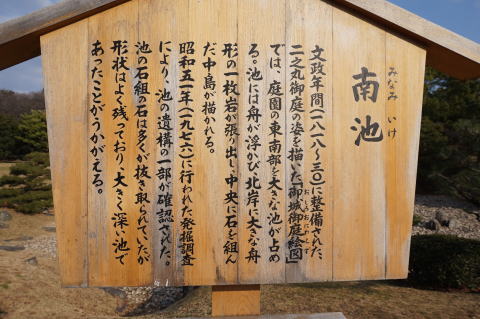 南池
みなみ いけ
文政年間(一八一八～三〇)に整備された、
二之丸御庭の姿を描いた「御城御庭絵図」
おしろおにわえず
では、庭園の東南部を大きな池が占め
る。池には舟が浮かび、北岸に大きな舟
形の一枚岩が張り出し、中央に石を組ん
だ中島が描かれる。
昭和五一年(一九七六)に行われた発掘調査
により、池の遺構の一部が確認された。
池の石組の石は多くが抜き取られていたが
形状はよく残っており、大きく深い池で
あったことがうかがえる。